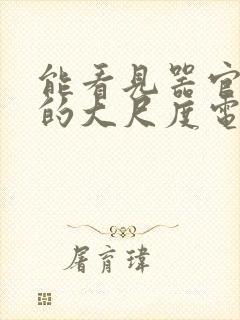 能看见器官
的大尺度电
屠育瑋